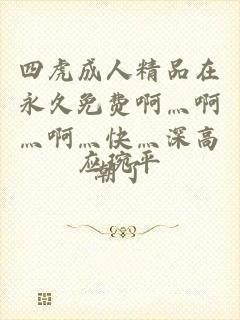 四虎成人精品在
永久免费啊灬啊
灬啊灬快灬深高
潮了
应琬平